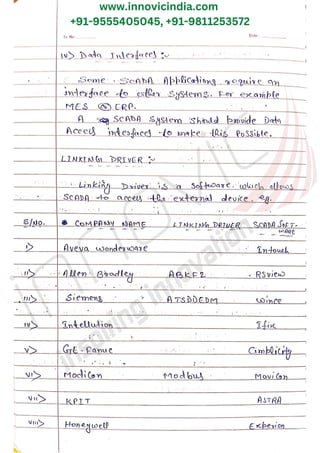 www.innovicindia.com
+91-9555405045, +91-9811253572
Sr. No. Date
IV) Data Interfaces :-
Some SCADA Applications require an
interface to other systems. For example
MES & ERP.
A SCADA System should provide Data
Access interfaces to make this possible.
LINKING DRIVER :-
Linking Driver is a software which allows
SCADA to access the external device. eg.
S/NO. COMPANY NAME LINKING DRIVER SCADA SOFT-
WARE
I) Aveva wonderware Intouch
II) Allen Bradley ABKE2 RSview
III) Siemens ATSDDEDM Wince
IV) Intellution Ifix
V) GE-Fanuc Cimplicity
VI) Modicon Modbus Movicon
VII) KPIT ASTRA
VIII) Honeywell Experion
inspiring innovation